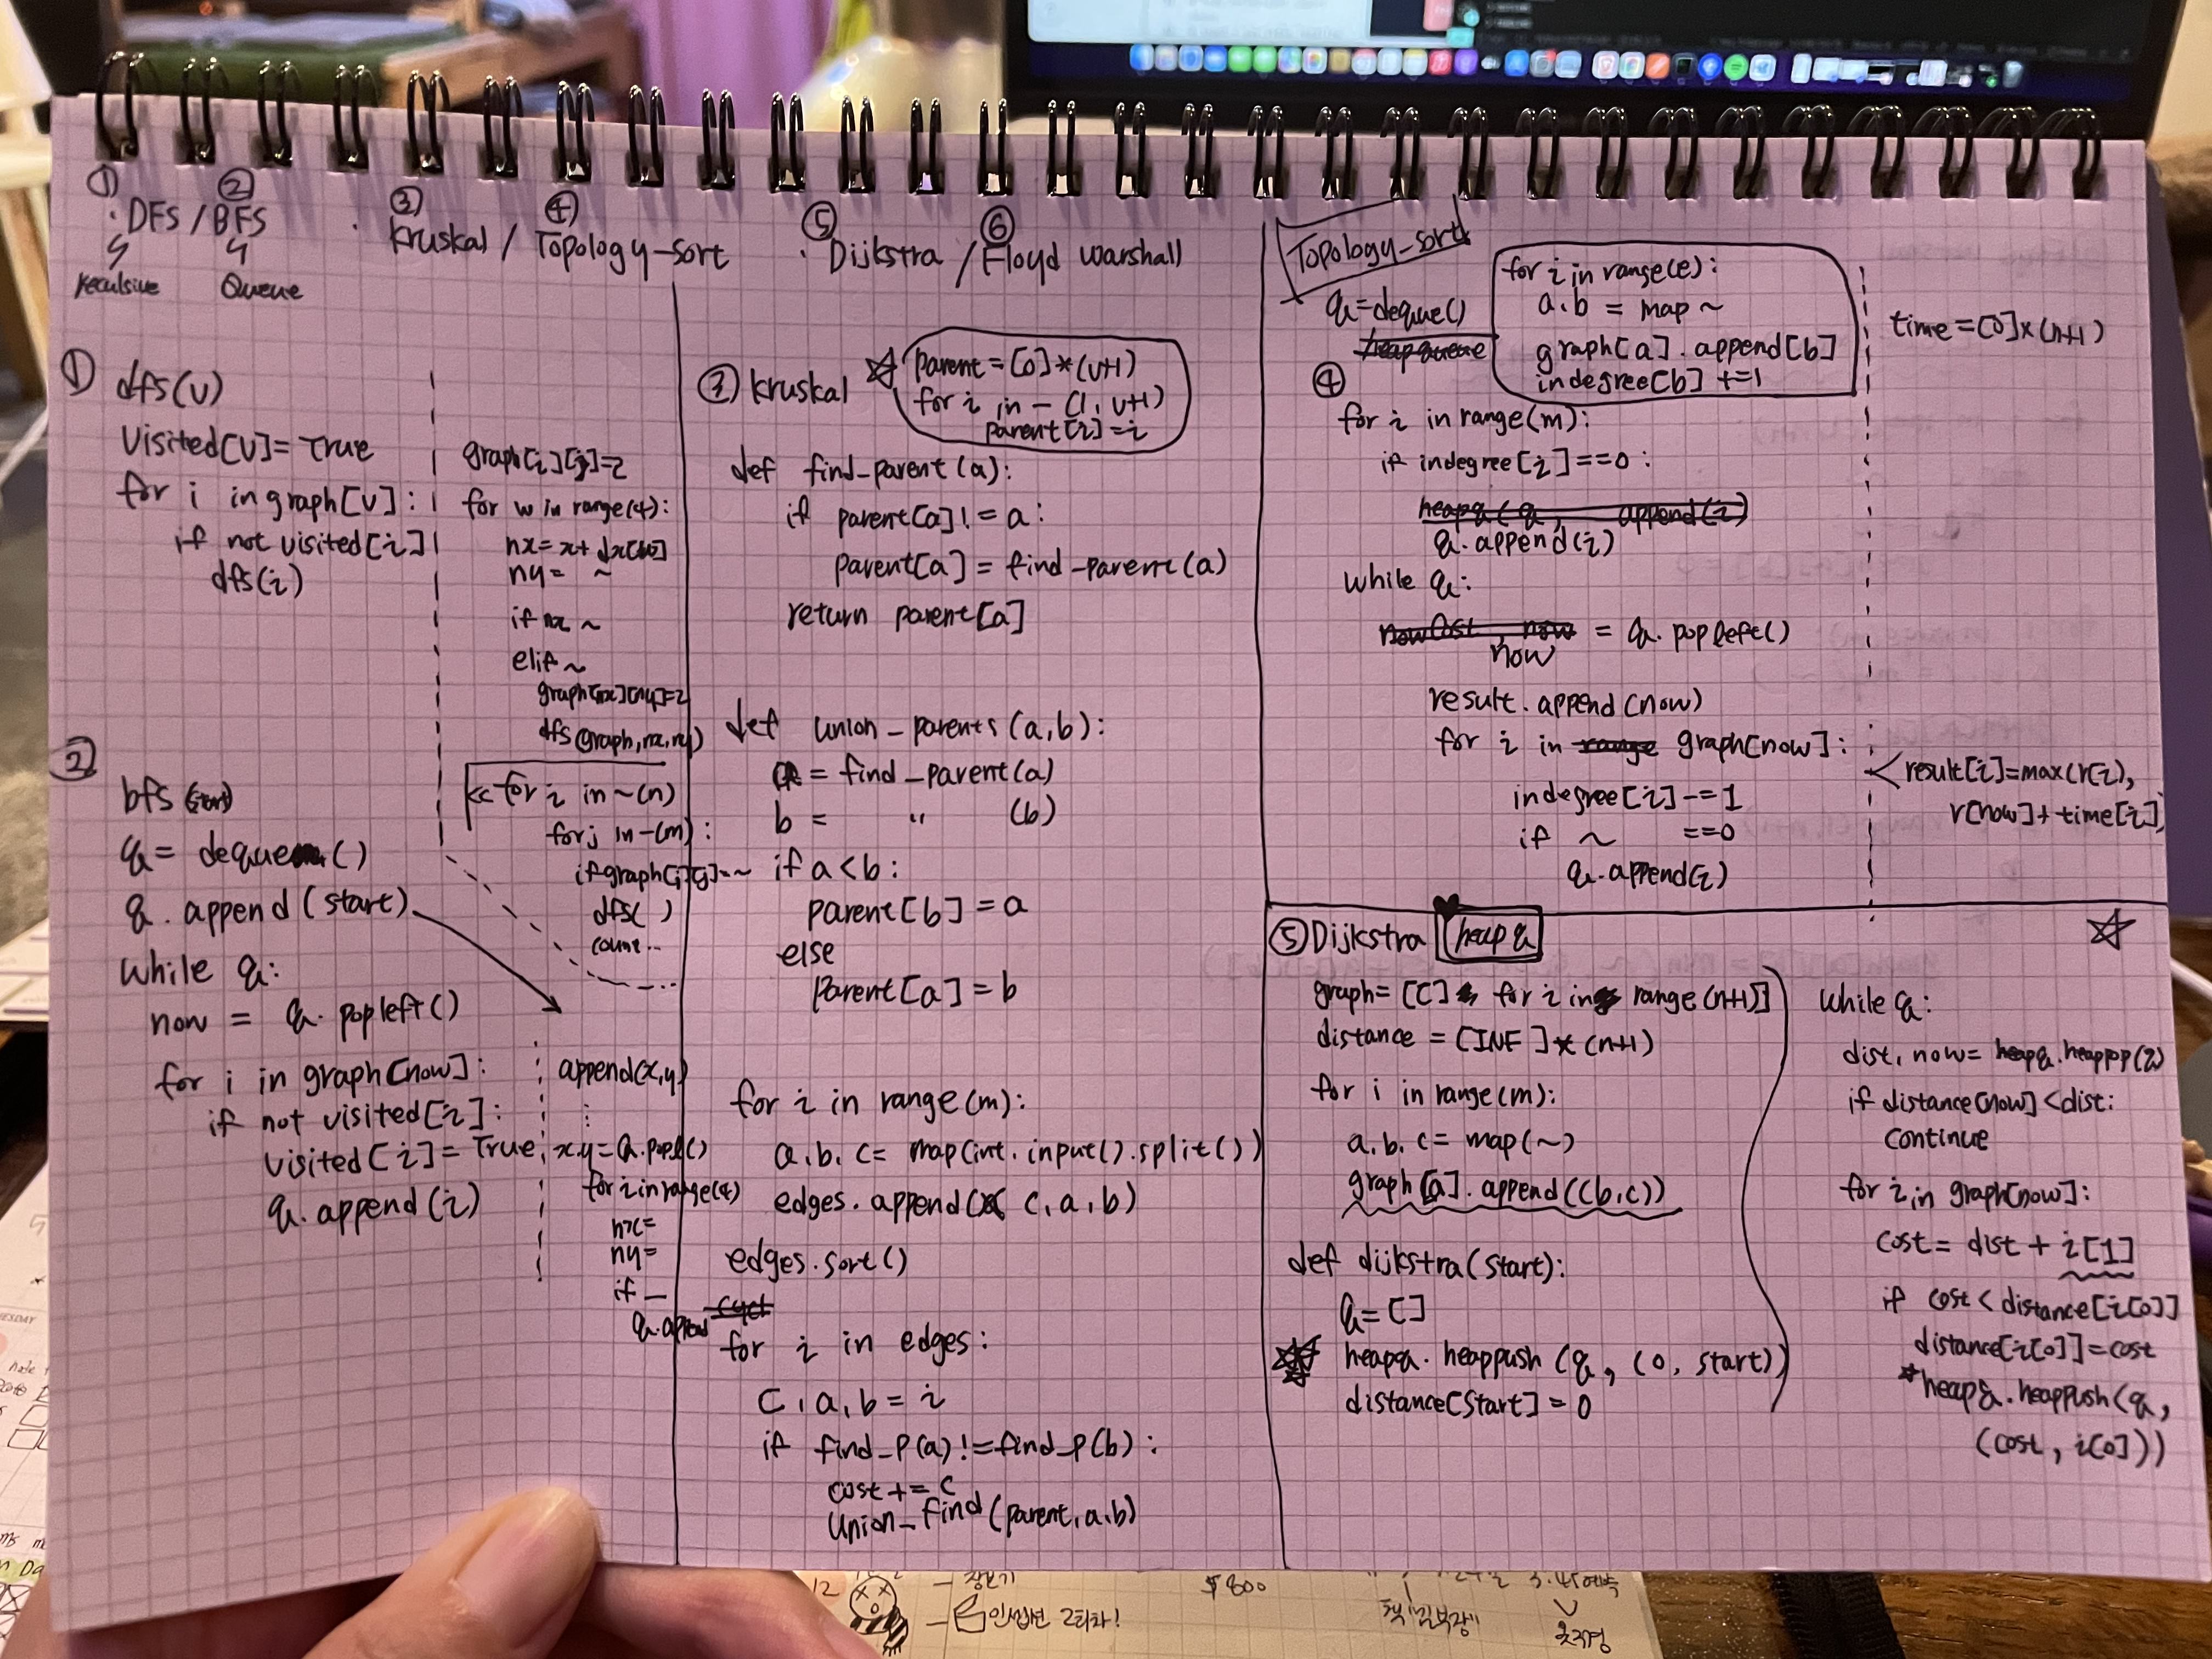 ① ②
· DFS / BFS
reculsive Queue
③ ④
· kruskal / Topology-sort
⑤ ⑥
· Dijkstra / Floyd warshall
① dfs(v)
visited[v] = True
for i in graph[v]:
if not visited[i]
dfs(i)
graph[i][j]=2
for w in range(4):
nx = x + dx[w]
ny = ~
if nx ~
elif ~
graph[nx][ny]=2
dfs(graph,nx,ny)
<< for i in ~(n)
for j in -(m):
if graph[i][j]=~
dfs( )
count..
②
bfs (start)
q = deque()
q.append(start)
while q:
now = q.popleft()
for i in graph[now]:
if not visited[i]:
visited[i] = True
q.append(i)
append(x,y)
x,y = q.popl()
for i in range(4)
nx=
ny=
if _
q.append
③ kruskal ☆ parent = [0]*(v+1)
for i in - (1, v+1)
parent[i] = i
def find_parent(a):
if parent[a] != a:
parent[a] = find_parent(a)
return parent[a]
def union_parents(a,b):
a = find_parent(a)
b = " (b)
if a<b:
parent[b] = a
else
parent[a] = b
for i in range(m):
a, b, c = map(int, input().split())
edges.append(c, a, b)
edges.sort()
cycl
for i in edges:
c, a, b = i
if find_p(a) != find_p(b):
cost += c
union_find(parent, a, b)
Topology-sort
q=deque()
heapqueue
for i in range(e):
a, b = map ~
graph[a].append[b]
indegree[b] += 1
time = [0]*(n+1)
④
for i in range(m):
if indegree[i]==0:
heapq(q, append(i)
q.append(i)
while q:
nowCost, now = q.popleft()
now
result.append(now)
for i in range graph[now]:
indegree[i] -= 1
if ~ ==0
q.append(i)
< result[i]=max(r[i],
r[now]+time[i]
⑤ Dijkstra heapq
graph = [[] for i in range(n+1)]
distance = [INF]*(n+1)
for i in range(m):
a, b, c = map(~)
graph[a].append((b,c))
def dijkstra(start):
q = []
heapq.heappush(q, (0, start))
distance[start] = 0
☆
while q:
dist, now = heapq.heappop(q)
if distance[now] < dist:
continue
for i in graph[now]:
cost = dist + i[1]
if cost < distance[i[0]]
distance[i[0]] = cost
*heapq.heappush(q,
(cost, i[0]))
12
- 장보기
$800